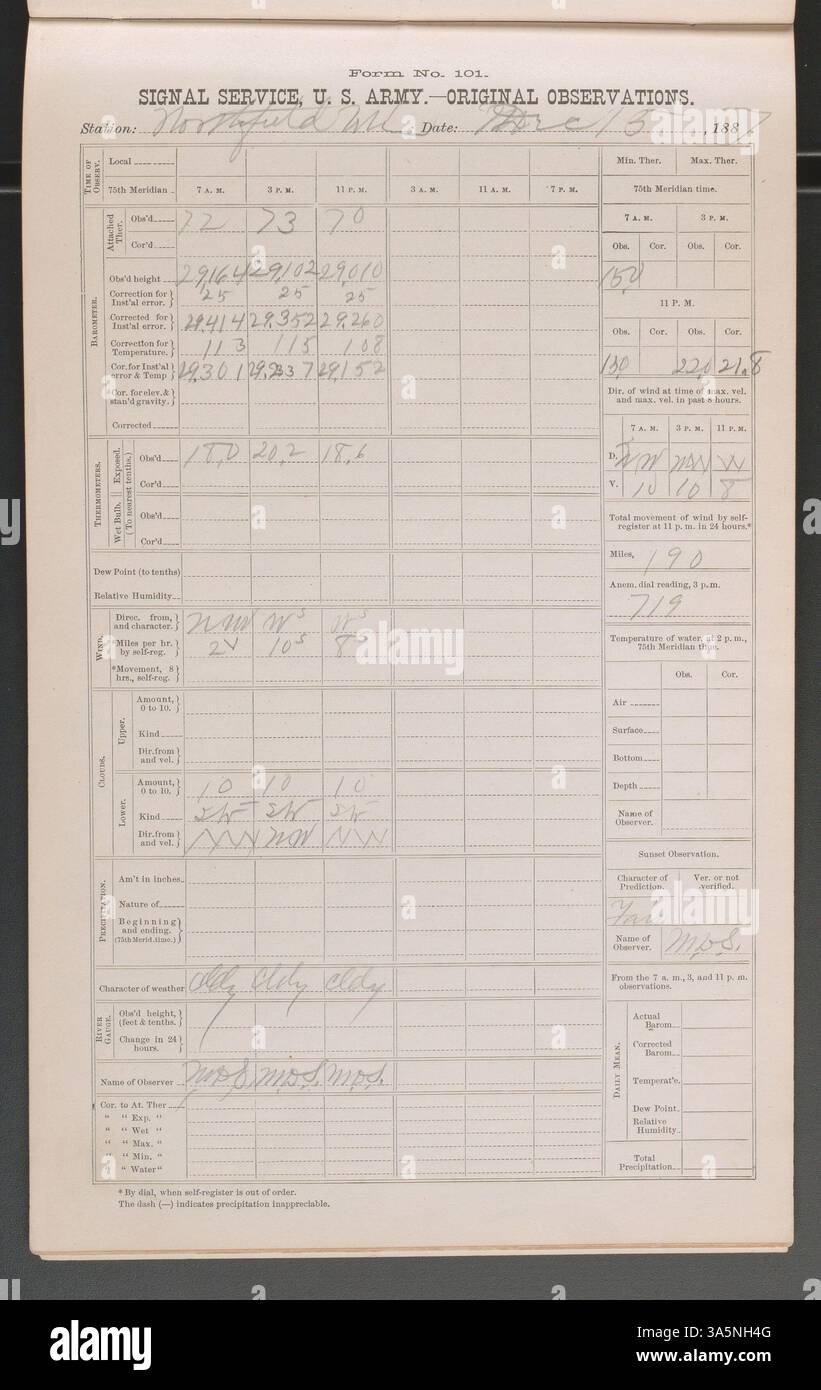 Form No. 101.
SIGNAL SERVICE, U. S. ARMY.—ORIGINAL OBSERVATIONS.
Station: Northfield Date: Dec 15, 1887
TIME OF OBSERV. Local
75th Meridian 7 A. M. 3 P. M. 11 P. M. 3 A. M. 11 A. M. 7 P. M.
Attached Ther. Obs'd 72 73 70
Cor'd
BAROMETER.
Obs'd height 29,164 29,102 29,010
Correction for Inst'al error. 25 25 25
Corrected for Inst'al error. 29.414 29.352 29.260
Correction for Temperature. 113 115 108
Cor. for Inst'al error & Temp 29.301 29.237 29.152
Cor. for elev. & stan'd gravity.
Corrected
THERMOMETERS. (To nearest tenths.)
Exposed. Obs'd 18,0 20,2 18,6
Cor'd
Wet Bulb. Obs'd
Cor'd
Dew Point (to tenths)
Relative Humidity
WIND.
Direc. from, and character. NW WS WS
*Miles per hr. by self-reg. 10S 8S
*Movement, 8 hrs., self-reg.
CLOUDS.
Upper. Amount, 0 to 10.
Kind
Dir. from and vel.
Lower. Amount, 0 to 10. 10 10 10
Kind
Dir. from and vel. NW NW NW
PRECIPITATION.
Am't in inches
Nature of
Beginning and ending. (75th Merid. time.)
Character of weather Cldy Cldy Cldy
RIVER GAUGE. Obs'd height, (feet & tenths.)
Change in 24 hours.
Name of Observer M.D.S. M.D.S. M.D.S.
Cor. to At. Ther
" " Exp. "
" " Wet "
" " Max. "
" " Min. "
" " Water "
* By dial, when self-register is out of order.
The dash (—) indicates precipitation inappreciable.
Min. Ther. Max. Ther.
75th Meridian time.
7 A. M. 3 P. M.
Obs. Cor. Obs. Cor.
15,0
11 P. M.
Obs. Cor. Obs. Cor.
13,0 22,0 21.8
Dir. of wind at time of max. vel. and max. vel. in past 8 hours.
7 A. M. 3 P. M. 11 P. M.
D. NW NW W
V. 10 10 8
Total movement of wind by self-register at 11 p. m. in 24 hours.*
Miles, 190
Anem. dial reading, 3 p.m.
719
Temperature of water, at 2 p. m., 75th Meridian time.
Obs. Cor.
Air
Surface
Bottom
Depth
Name of Observer.
Sunset Observation.
Character of Prediction. Ver. or not verified.
Fair
Name of Observer. M.D.S.
From the 7 a. m., 3, and 11 p. m. observations.
DAILY MEAN.
Actual Barom
Corrected Barom
Temperat'e.
Dew Point.
Relative Humidity
Total Precipitation
alamy
www.alamy.com
3A5NH4G